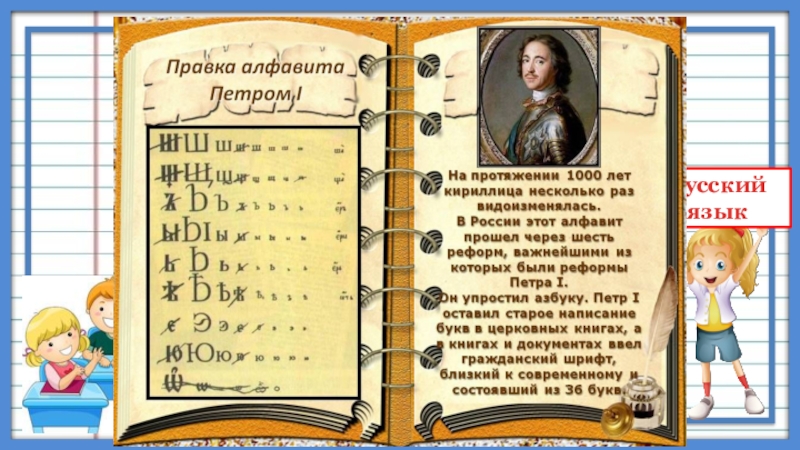 Правка алфавита
Петром I
Ш Ш ш ш ш ш ш ш
Щ Щ щ щ щ щ щ щ
Ъ Ъ Ъ ъ ъ ъ ъ ъ
Ы Ы ы ы ы ы ы ы
Ь Ь ь ь ь ь ь ь
Ѣ Ѣ ѣ ѣ ѣ ѣ ѣ ѣ
Э Э э э э э
Ю Ю ю ю ю ю ю ю
Ѿ
На протяжении 1000 лет
кириллица несколько раз
видоизменялась.
В России этот алфавит
прошел через шесть
реформ, важнейшими из
которых были реформы
Петра I.
Он упростил азбуку. Петр I
оставил старое написание
букв в церковных книгах, а
в книгах и документах ввел
гражданский шрифт,
близкий к современному и
состоявший из 36 букв
усский
язык